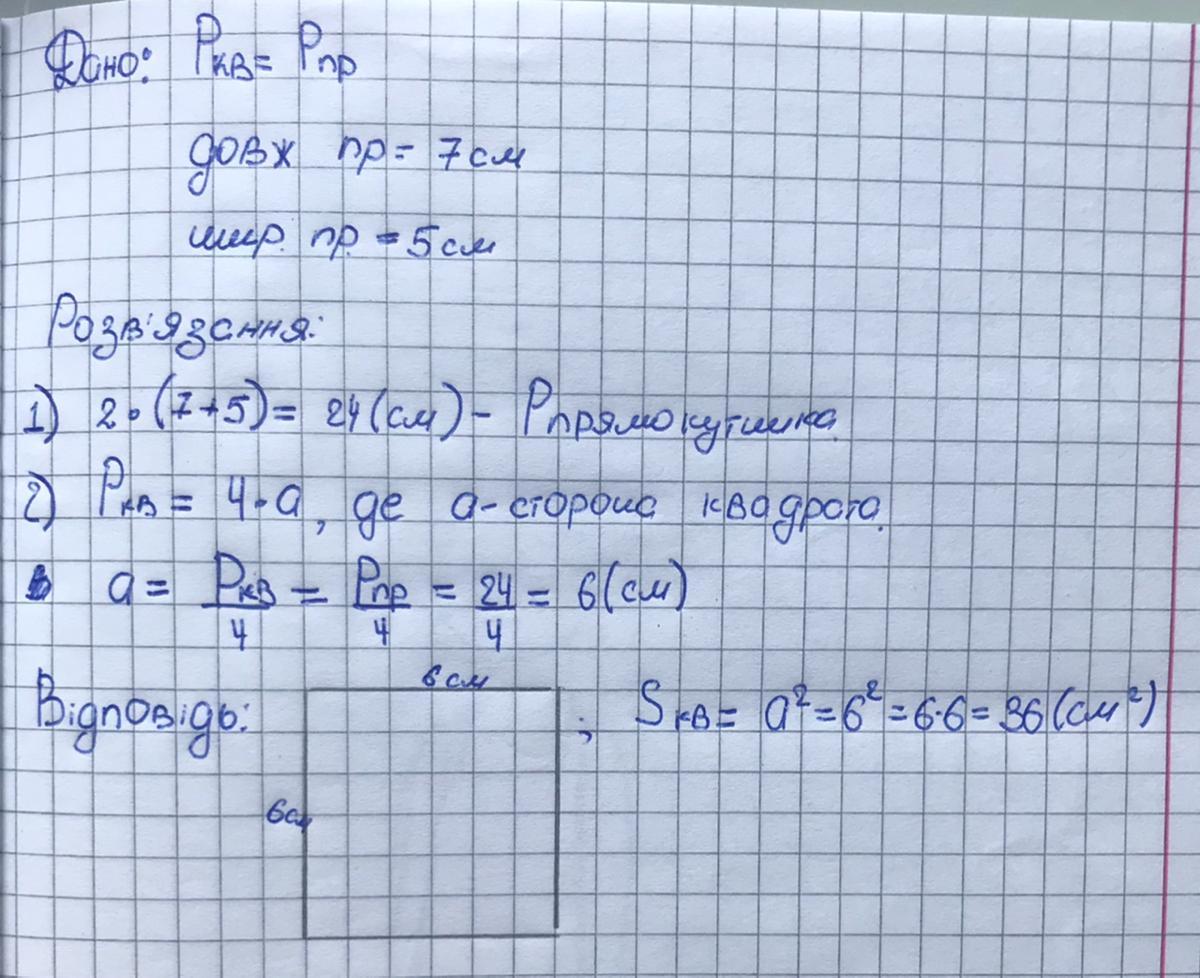 Дано: Pкв = Pпр
довж пр = 7 см
шир. пр. = 5 см
Розв'язання:
1) 2•(7+5) = 24 (см) - Pпрямокутника.
2) Pкв = 4•a, де a - сторона квадрата.
a = Pкв/4 = Pпр/4 = 24/4 = 6 (см)
6 см
Відповідь: ; Sкв = a² = 6² = 6·6 = 36 (см²)
6см